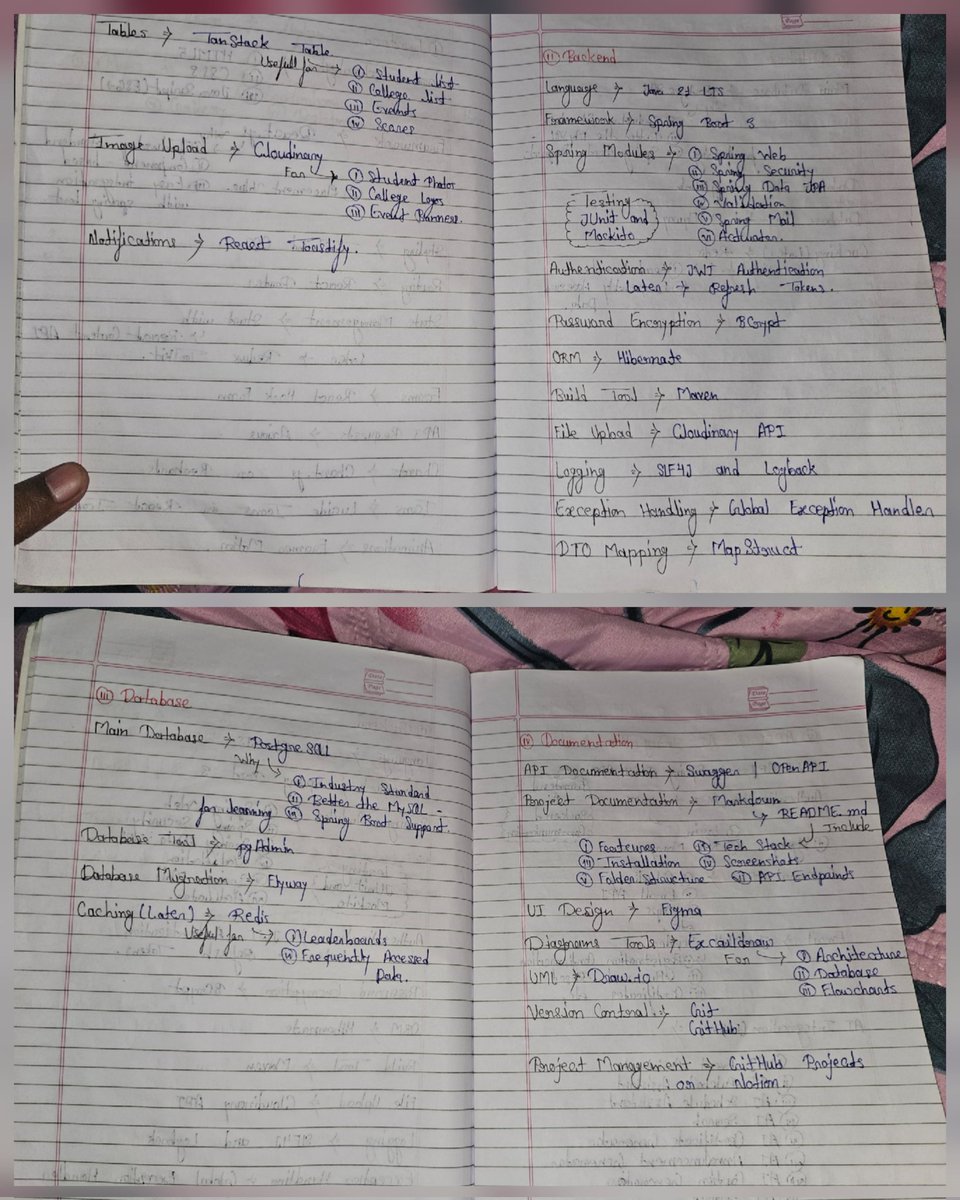 Tables → TanStack Table
Usefull for → (i) Student list
(ii) College list
(iii) Events
(iv) Scores
Image Upload → Cloudinary
For → (i) Student Photos
(ii) College Logos
(iii) Event Banners.
Notifications → React Toastify.
(ii) Backend
Language → Java 21 LTS
Framework → Spring Boot 3
Spring Modules → (i) Spring Web
(ii) Spring Security
(iii) Spring Data JPA
(iv) Validation
(v) Spring Mail
(vi) Actuator.
Testing
JUnit and
Mockito
Authentication → JWT Authentication
Later → Refresh Tokens.
Password Encryption → BCrypt
ORM → Hibernate
Build Tool → Maven
File Upload → Cloudinary API
Logging → SLF4J and Logback
Exception Handling → Global Exception Handler
DTO Mapping → MapStruct
(iii) Database
Main Database → PostgreSQL
Why → (i) Industry Standard
(ii) Better the MySQL -
for learning (iii) Spring Boot Support.
Database Tool → pgAdmin
Database Migration → Flyway
Caching (Later) → Redis
Useful for → (i) Leaderboards
(ii) Frequently Accessed
Data.
(iv) Documentation
API Documentation → Swagger / OpenAPI
Project Documentation → Markdown
→ README.md
Include
(i) Features (ii) Tech Stack
(iii) Installation (iv) Screenshots
(v) Folder Structure (vi) API Endpoints
UI Design → Figma
Diagrams Tools → Excalidraw
For → (i) Architecture
(ii) Database
(iii) Flowcharts
UML → Draw.io
Version Control → Git
GitHub
Project Management → GitHub Projects
or Notion